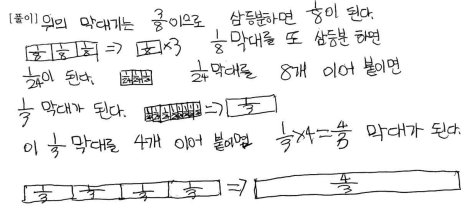 [풀이] 위의 막대기는 3/8 이므로 삼등분하면 1/8이 된다.
1/8 1/8 1/8 ⇒ 1/8 ×3 1/8 막대를 또 삼등분 하면
1/24이 된다. 1/24 1/24 1/24 1/24 막대를 8개 이어 붙이면
1/3 막대가 된다. ⇒ 1/3
이 1/3 막대를 4개 이어 붙이면 1/3×4=4/3 막대가 된다.
1/3 1/3 1/3 1/3 ⇒ 4/3